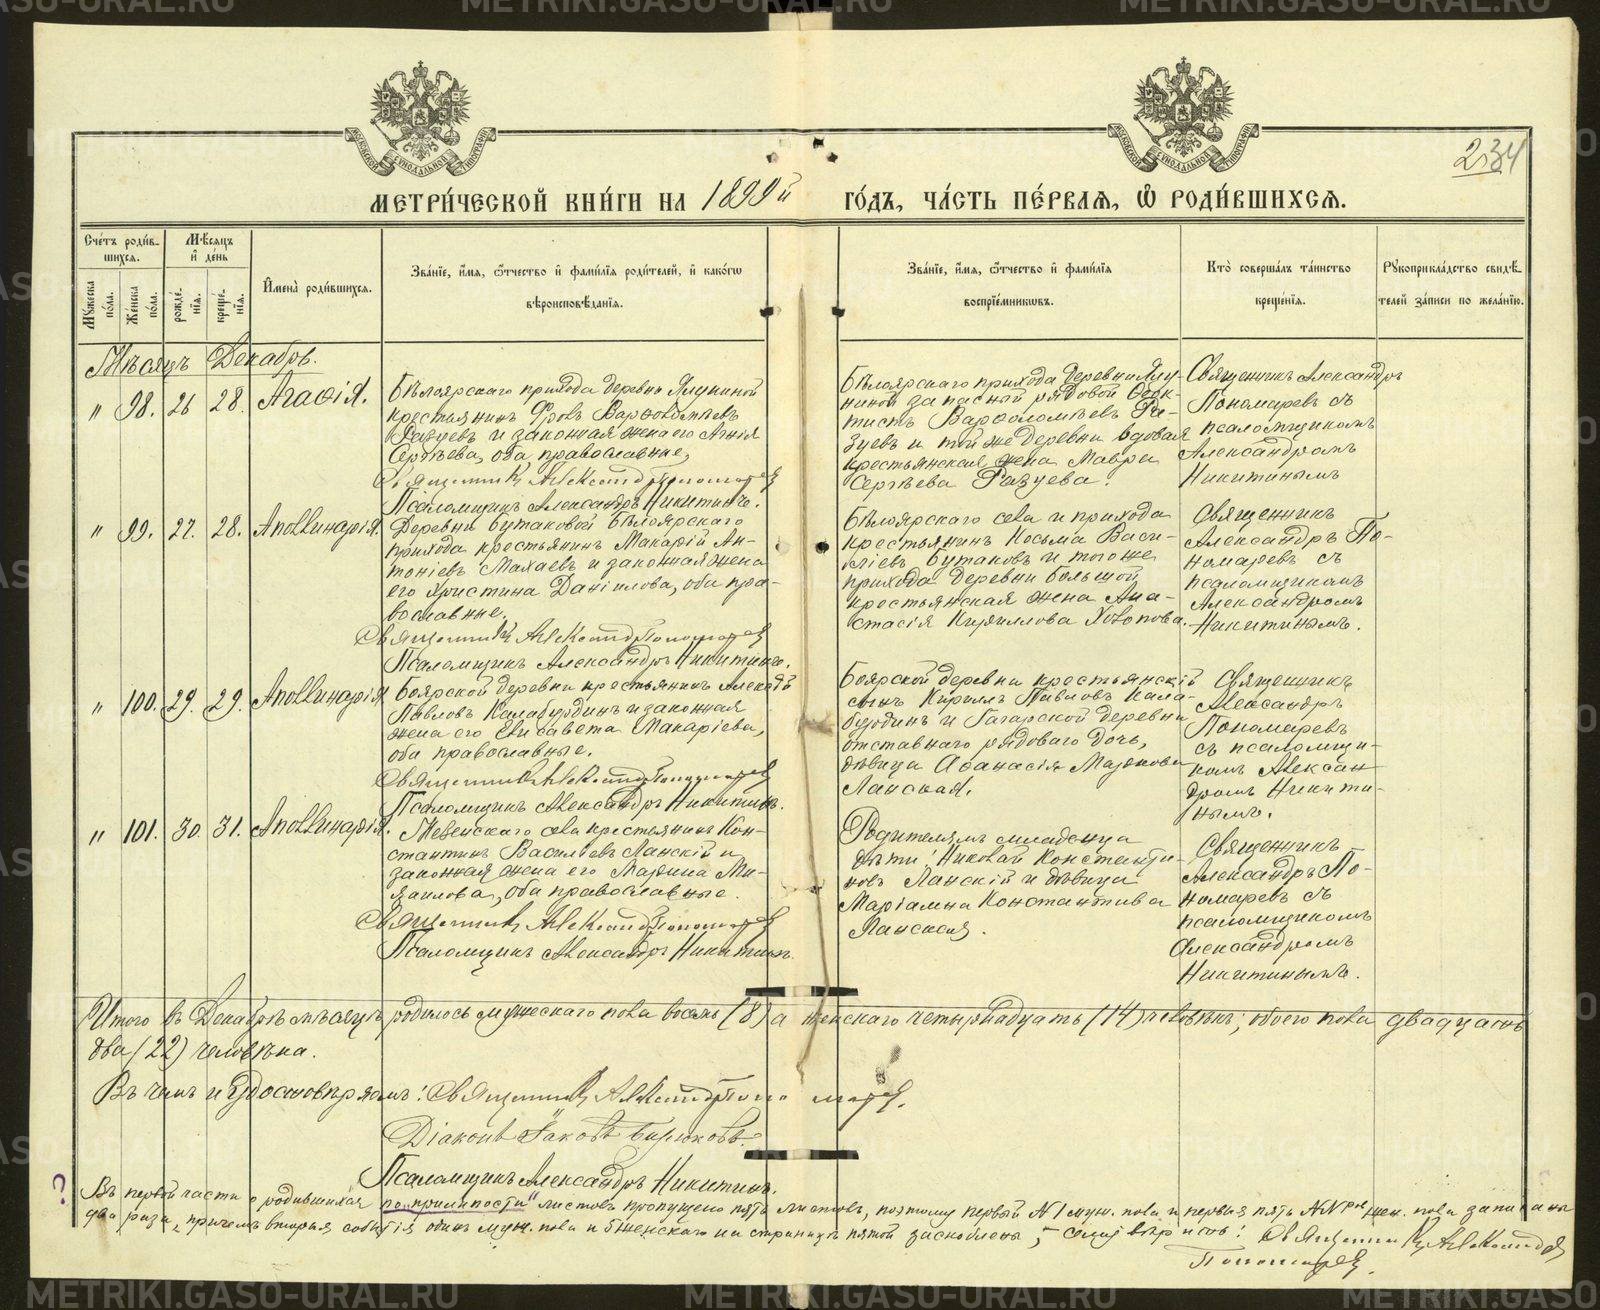 METRIKI.GASO-URAL.RU
234
МЕТРИ́ЧЕСКОЙ КНИ́ГИ НА 1899й ГО́ДЪ, ЧА́СТЬ ПЕ́РВАѦ, Ѡ҆ РОДИ́ВШИХСѦ.
Сче́тъ роди́в-
шихсѧ.
Мѣ́сяцъ
и҆ де́нь
Мꙋ́жеска
пола.
Же́нска
по́ла.
рожде́-
нїѧ.
креще́-
нїѧ.
И҆мена̀ роди́вшихсѧ.
Зва́нїе, и҆́мѧ, ѻ҆́тчество и҆ фами́лїѧ роди́телей, и҆ како́гѡ
вѣроисповѣ́данїѧ.
Зва́нїе, и҆́мѧ, ѻ҆́тчество и҆ фами́лїѧ
воспрїе́мникѡвъ.
Кто̀ соверша́лъ та́инство
креще́нїѧ.
Рꙋкоприкла́дство свидѣ́-
телей за́писи по жела́нїю.
Мѣсяцъ Декабрь.
" 98. 26 28. Агафія.
Бѣлоярскаго прихода деревни Ялуниной
крестьянинъ Фролъ Варфоломѣевъ
Разуевъ и законная жена его Агнія
Сергѣева, оба православные.
Священникъ Александръ Пономаревъ
Псаломщикъ Александръ Никитинъ.
Бѣлоярскаго прихода деревни Ялу-
ниной запасный рядовой Ѳеок-
тистъ Варфоломѣевъ Ра-
зуевъ и той же деревни вдовая
крестьянская жена Мавра
Сергѣева Разуева.
Священникъ Александръ
Пономаревъ съ
псаломщикомъ
Александромъ
Никитинымъ
" 99. 27. 28. Аполлинарія.
Деревни Бутаковой Бѣлоярскаго
прихода крестьянинъ Макарій Ан-
тоніевъ Махаевъ и законная жена
его Христина Даніилова, оба пра-
вославные.
Священникъ Александръ Пономаревъ
Псаломщикъ Александръ Никитинъ.
Бѣлоярскаго села и прихода
крестьянинъ Косьма Васи-
ліевъ Бутаковъ и того же
прихода деревни Большой
крестьянская жена Ана-
стасія Кириллова
Священникъ
Александръ По-
номаревъ съ
псаломщикомъ
Александромъ
Никитинымъ.
" 100. 29. 29. Аполлинарія
Боярской деревни крестьянинъ Алексѣй
Павловъ Калабурдинъ и законная
жена его Елисавета Макаріева,
оба православные.
Священникъ Александръ Пономаревъ
Псаломщикъ Александръ Никитинъ.
Боярской деревни крестьянскій
сынъ Кириллъ Павловъ Кала-
бурдинъ и Гагарской деревни
отставнаго рядоваго дочь,
дѣвица Аѳанасія
Ланская.
Священникъ
Александръ
Пономаревъ
съ псаломщи-
комъ Алексан-
дромъ Никити-
нымъ.
" 101. 30. 31. Аполлинарія.
села крестьянинъ Кон-
стантинъ Василіевъ Ланскій и
законная жена его Марина Ми-
хаилова, оба православные.
Священникъ Александръ Пономаревъ
Псаломщикъ Александръ Никитинъ.
Родителямъ младенца
дѣти: Николай Константи-
новъ Ланскій и дѣвица
Маріамна Константинова
Ланская.
Священникъ
Александръ По-
номаревъ съ
псаломщикомъ
Александромъ
Никитинымъ.
Итого въ Декабрѣ мѣсяцѣ родилось мужескаго пола восемь (8) а женскаго четырнадцать (14) человѣкъ; обоего пола двадцать
два (22) человѣка.
Въ чемъ и удостовѣряемъ: Священникъ Александръ Пономаревъ.
Діаконъ Іаковъ Бирюковъ.
Псаломщикъ Александръ Никитинъ.
? Въ первой части о родившихся листовъ пропущено пять листовъ, поэтому первый №1 муж. пола и первыя пять №№ жен. пола записаны
два раза, причемъ вторыя событія одинъ муж. пола и женскаго на страницѣ пятой Священникъ Александръ
Пономаревъ.